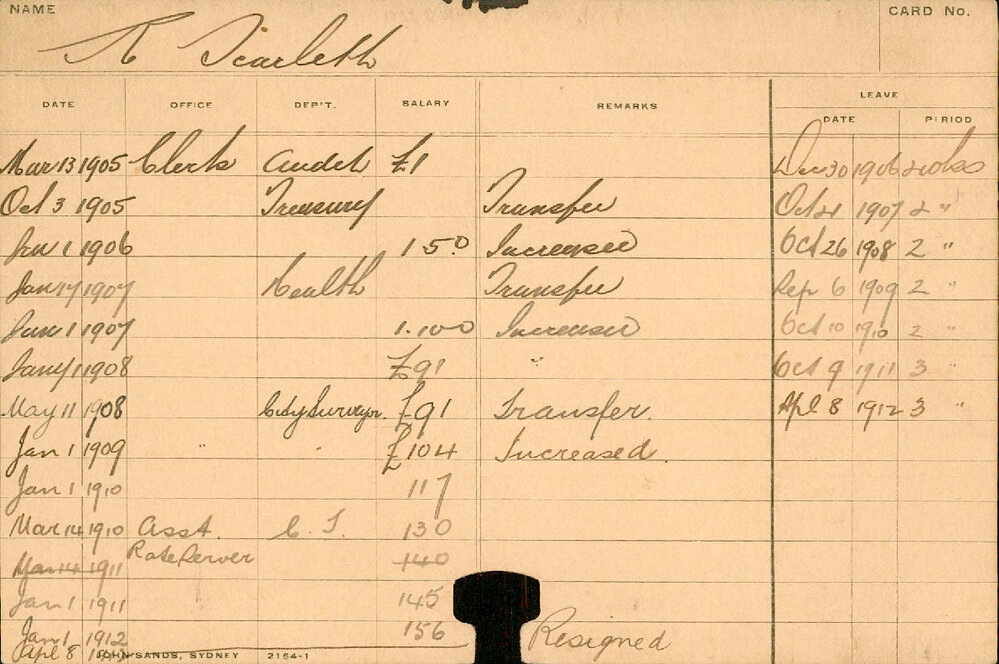 NAME
CARD No.
R Scarleth
DATE OFFICE DEP'T. SALARY REMARKS LEAVE
DATE PERIOD
Mar 13 1905 Clerk Audit £1 Dec 30 1906 2 wks
Oct 3 1905 Treasury Transfer Oct 21 1907 2 "
Jan 1 1906 1 5.0 Increased Oct 26 1908 2 "
Jan 17 1907 Health Transfer Sep 6 1909 2 "
Jan 1 1907 1.10.0 Increased Oct 10 1910 2 "
Jany 1 1908 £91 " Oct 9 1911 3 "
May 11 1908 City Surveyr. £91 Transfer. Apl 8 1912 3 "
Jan 1 1909 " " £104 Increased.
Jan 1 1910 117
Mar 14 1910 Asst. C. T. 130
Rate Server
Mar 14 1911 140
Jan 1 1911 145
Jan 1 1912 156 Resigned
Apl 8
JOHN SANDS, SYDNEY 2154-1